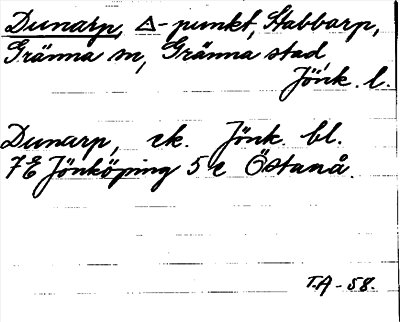 Dunarp, △-punkt, Stabbarp,
Gränna sn, Gränna stad,
Jönk. l.
Dunarp, ek. Jönk. bl.
7E Jönköping 5 e Östanå.
T.A-58.